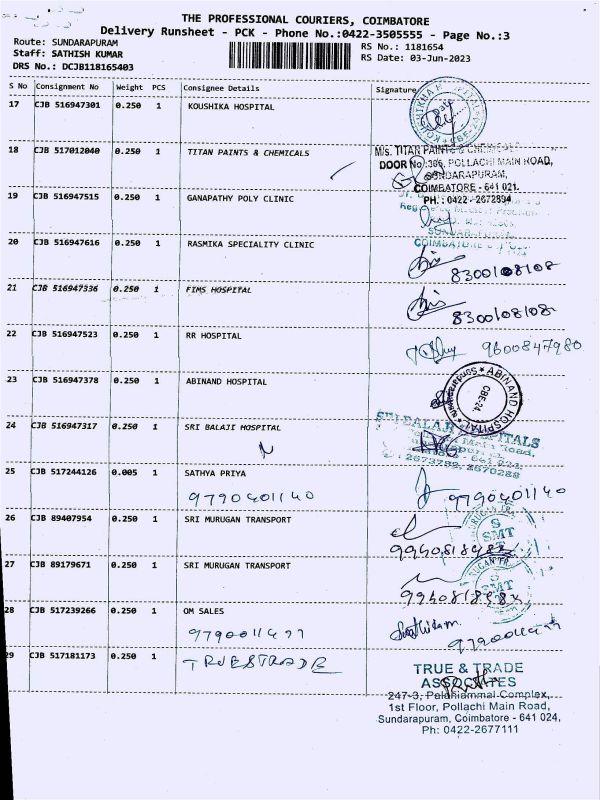 THE PROFESSIONAL COURIERS, COIMBATORE
Delivery Runsheet - PCK - Phone No.:0422-3505555 - Page No.:3
Route: SUNDARAPURAM
RS No.: 1181654
Staff: SATHISH KUMAR
RS Date: 03-Jun-2023
DRS No.: DCJB118165403
S No Consignment No Weight PCS Consignee Details Signature
17 CJB 516947301 0.250 1 KOUSHIKA HOSPITAL
18 CJB 517012040 0.250 1 TITAN PAINTS & CHEMICALS
M/s. TITAN PAINTS &
DOOR No.:306, POLLACHI MAIN ROAD,
SUNDARAPURAM,
COIMBATORE - 641 021.
PH. : 0422 - 2672894
19 CJB 516947515 0.250 1 GANAPATHY POLY CLINIC
20 CJB 516947616 0.250 1 RASMIKA SPECIALITY CLINIC
8300108108
21 CJB 516947336 0.250 1 FIMS HOSPITAL
8300108108
22 CJB 516947523 0.250 1 RR HOSPITAL
9600847980
23 CJB 516947378 0.250 1 ABINAND HOSPITAL
ABINAND HOSPITAL
24 CJB 516947317 0.250 1 SRI BALAJI HOSPITAL
Main Road,
25 CJB 517244126 0.005 1 SATHYA PRIYA
9790401140 9790401140
26 CJB 89407954 0.250 1 SRI MURUGAN TRANSPORT
S
SMT
27 CJB 89179671 0.250 1 SRI MURUGAN TRANSPORT
S
SMT
28 CJB 517239266 0.250 1 OM SALES
29 CJB 517181173 0.250 1 TRUESTRADE
TRUE & TRADE
ASSOCIATES
247-3, Palaniammal Complex,
1st Floor, Pollachi Main Road,
Sundarapuram, Coimbatore - 641 024,
Ph: 0422-2677111